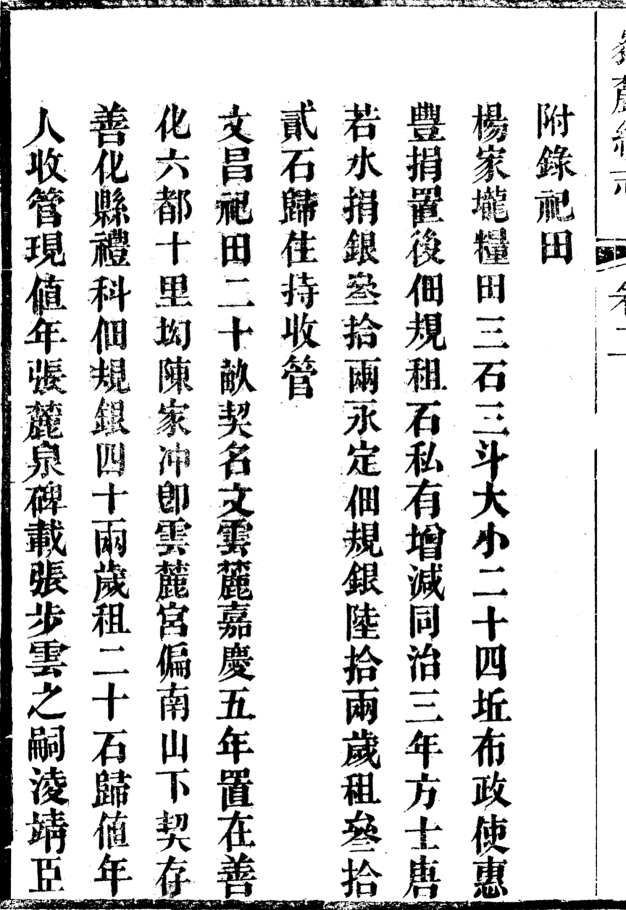 麓續志
卷二
附錄祀田
楊家壠糧田三石三斗大小二十四坵布政使惠
豐捐置後佃規租石私有增減同治三年方士唐
若水捐銀叄拾兩永定佃規銀陸拾兩歲租叄拾
貳石歸住持收管
文昌祀田二十畝契名文雲麓嘉慶五年置在善
化六都十里坳陳家冲卽雲麓宮偏南山下契存
善化縣禮科佃規銀四十兩歲租二十石歸值年
人收管現值年張麓泉碑載張步雲之嗣淩靖臣